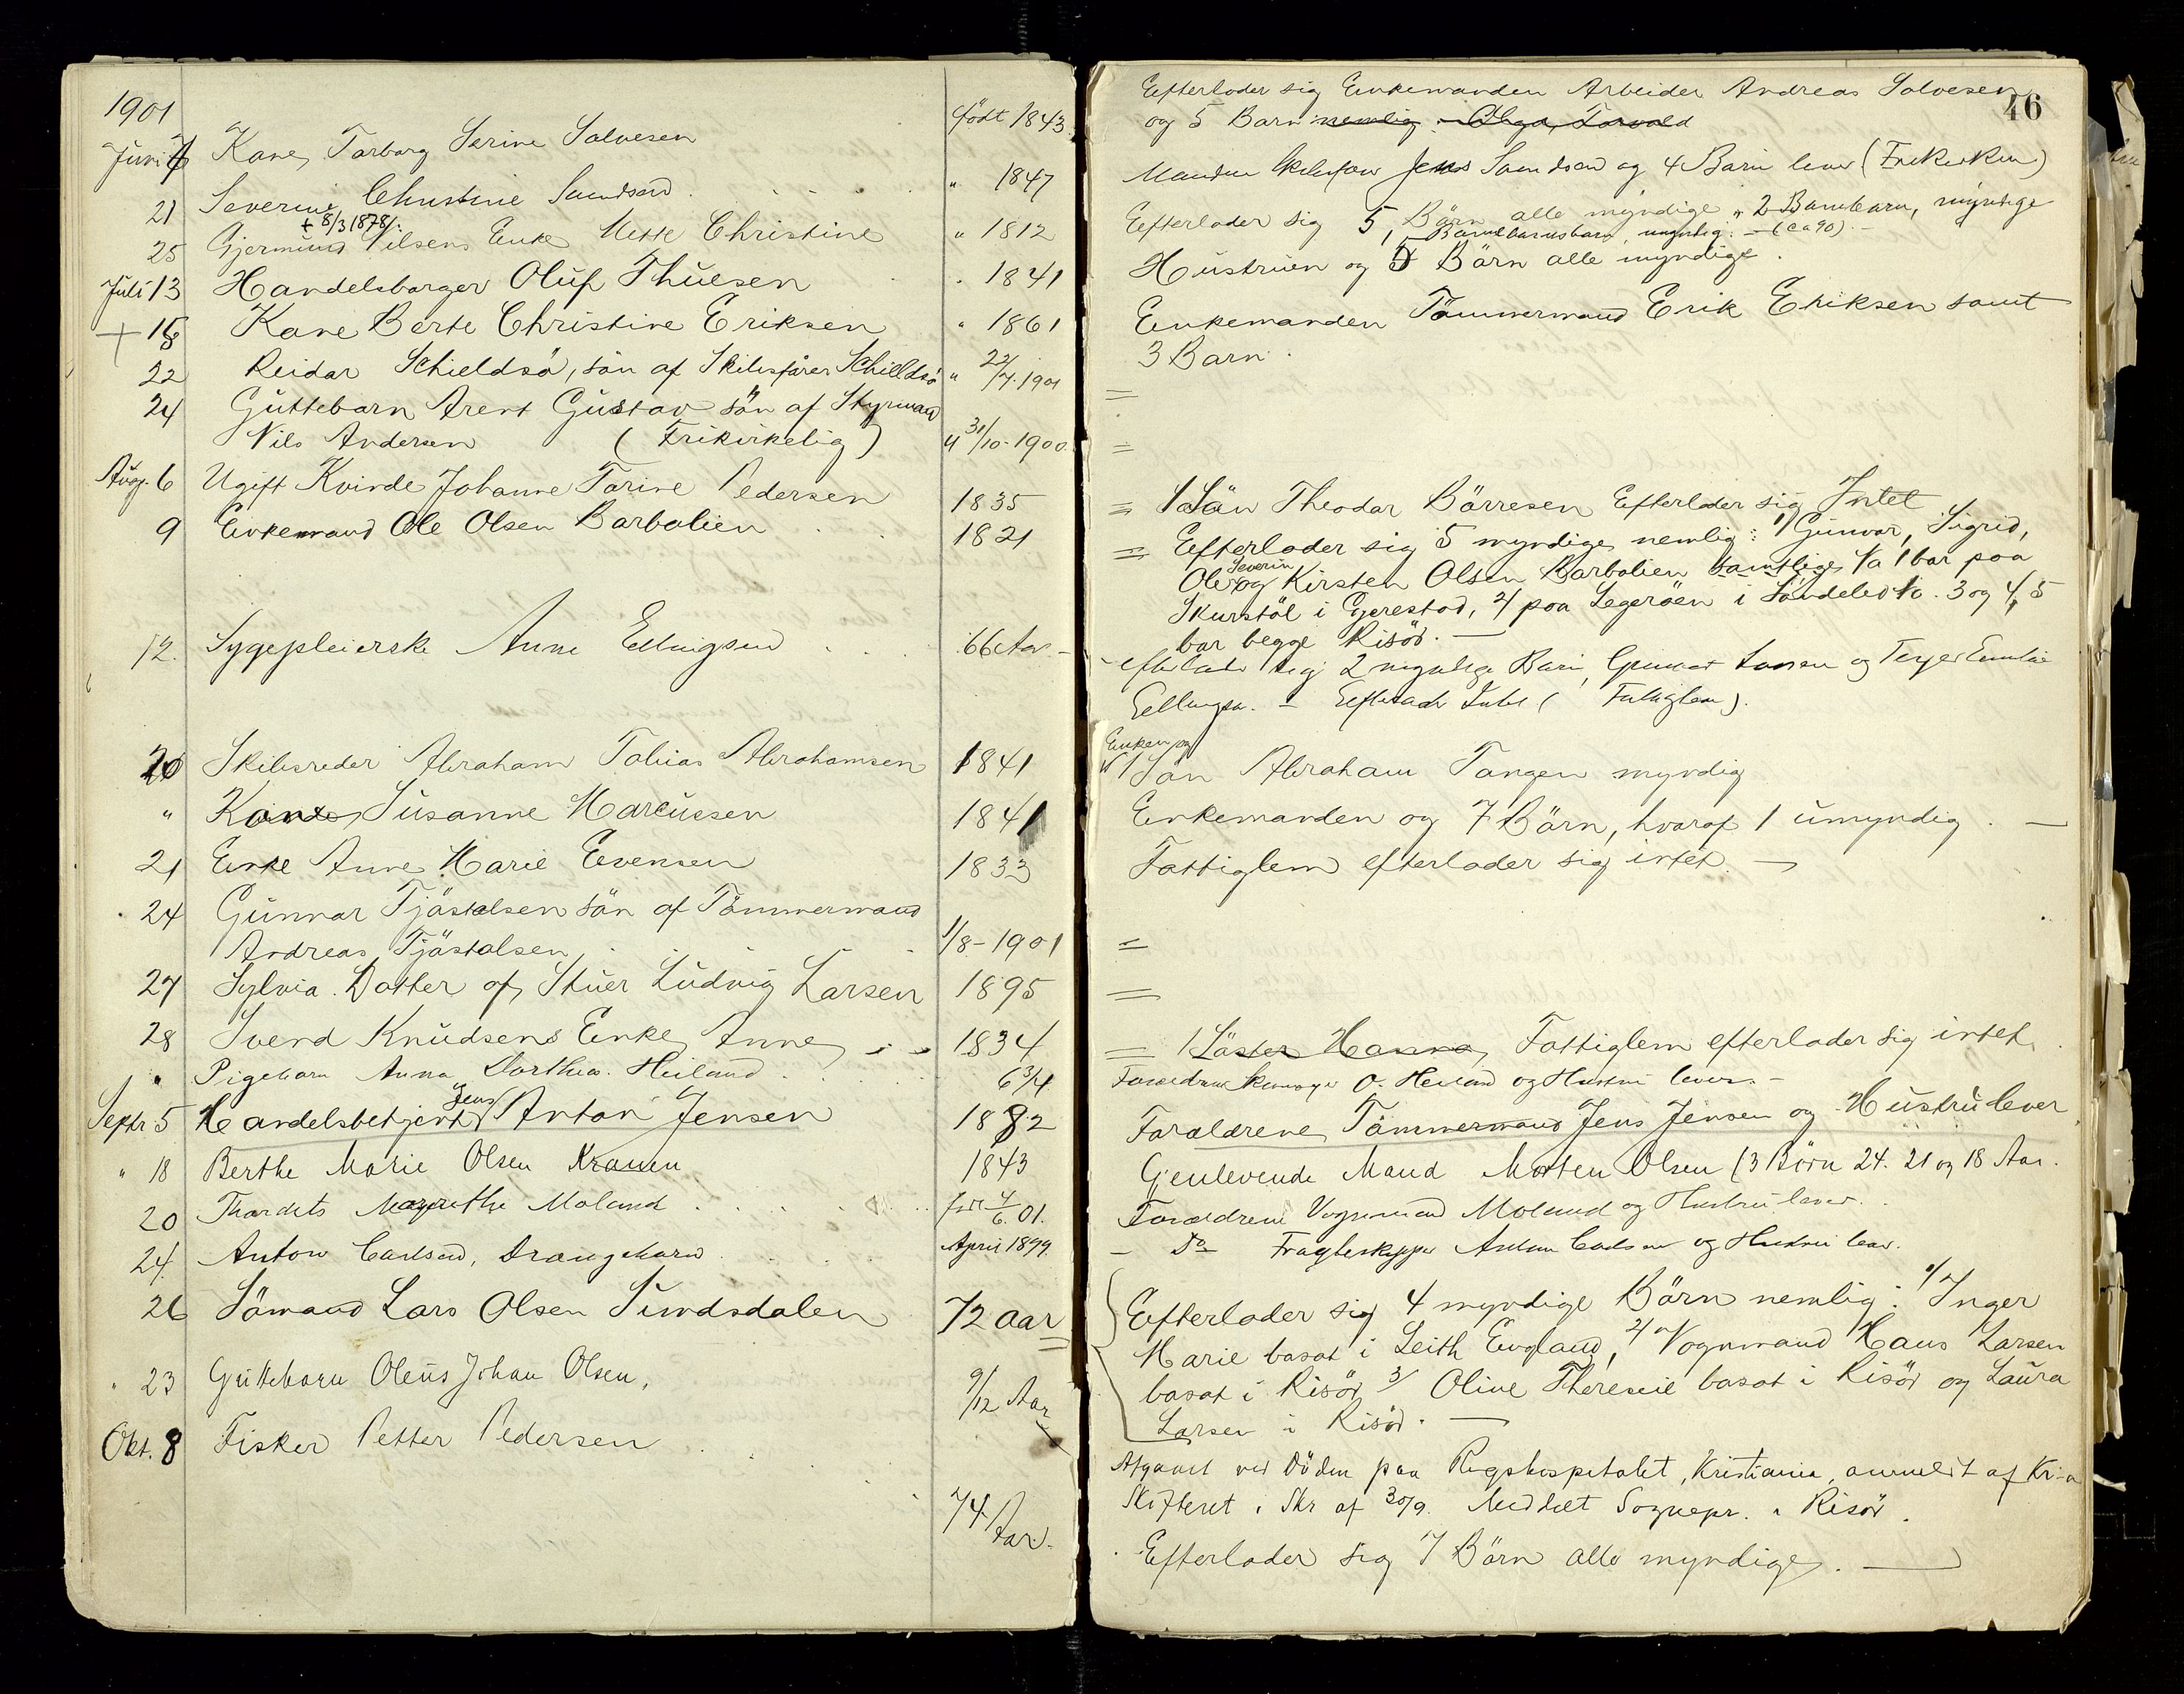 1901
født 1843.
Juni 7 Kone, Torborg Serine Salvesen
21 Severine Christine Svendsen . . . . " 1847
+ 8/3 1878/:
25 Gjermund Nilsens Enke Mette Christine " 1812
Juli 13 Handelsborger Oluf Thuesen " 1841
+ 18 Kone Berte Christine Eriksen " 1861
22 Reidar Schieldsö, sön af Skibsfører Schieldsö " 22/7.1901
24 Guttebarn Arent Gustav sön af Styrmand
Nils Andersen (Frikirkelig) " 31/10-1900.
Aug. 6 Ugift Kvinde Johanne Torine Pedersen 1835
9 Enkemand Ole Olsen Barbolien . 1821
12. Sygepleierske Anne Ellingsen . . . . 66 Aar
20 Skibsreder Abraham Tobias Abrahamsen 1841
" Kone, Susanne Marcussen 1841
21 Enke Anne Marie Evensen 1833
24 Gunnar Tjöstolsen sön af Tömmermand
Andreas Tjöstolsen 1/8-1901
27 Sylvia. Datter af Stuer Ludvig Larsen 1895
28 Svend Knudsens Enke, Anne, . . 1834
" Pigebarn Anna Dorthea Heiland . . . . 6 3/4
Jens
Septr 5 Handelsbetjent Anton Jensen 1882
" 18 Berthe Marie Olsen Kranen 1843
20 Thordis Margrethe Moland . . . . . 6.01.
24. Anton Carlsen, Drengebarn . . . April 1899.
26 Sömand Lars Olsen Sundsdalen 72 aar
" 23 Guttebarn Oleus Johan Olsen, 9/12 Aar
Okt. 8 Fisker Petter Pedersen . 74 Aar.
46
Efterlader sig Enkemanden Arbeider Andreas Salvesen
og 5 Barn nemlig: Olga, Torvald
Manden Skibsförer Jens Svendsen og 4 Barn lever (Frikirken)
Efterlader sig 5, Börn alle myndige, 2 Barnebarn, myndige
Barnebarnsbarn, umyndig. - (ca 90) -
Hustruen og 5 Börn alle myndige.
Enkemanden Tömmermand Erik Eriksen samt
3 Barn.
=
=
= 1 Sön Theodor Börresen Efterlader sig Intet
= Efterlader sig 5 myndige, nemlig: 1/ Gunvor, Sigrid,
Severin
Ole og Kirsten Olsen Barbolien samtlige, No 1 bor paa
Skurstöl i Gjerestad, 2/ paa Legeröen i Söndeled No. 3 og 4, 5
bor begge Risör. -
efterlader sig 2 myndige Barn, Gunvor Larsen og Terje Emilie
Ellingsen. - Efterlader Intet (Fattiglem).
Enken og
1 Sön Abraham Tangen myndig
Enkemanden og 7 Börn, hvoraf 1 umyndig. -
Fattiglem efterlader sig intet. -
=
=
= 1 Söster Hanna, Fattiglem efterlader sig intet.
Forældrene O. Heiland og Hustru lever. -
Forældrene, Tömmermand Jens Jensen og Hustru lever
Gjenlevende Mand Morten Olsen (3 Börn 24. 21 og 18 Aar.
Forældrene Vognmand Moland og Hustru lever.
- Do Fragteskipper Anton Carlsen og Hustru lever.
Efterlader sig 4 myndige Börn nemlig: 1/ Inger
Marie bosat i Leith England, 2/ Vognmand Hans Larsen
bosat i Risör, 3/ Oline Theresie bosat i Risör og Laura
Larsen i Risör. -
Afgaaet ved Döden paa Rigshospitalet, Kristiania, anmeldt af Kr-a
Skifteret i Skr af 30/9. Meddelt Sognepr. i Risör.
Efterlader sig 7 Börn alle myndige. -